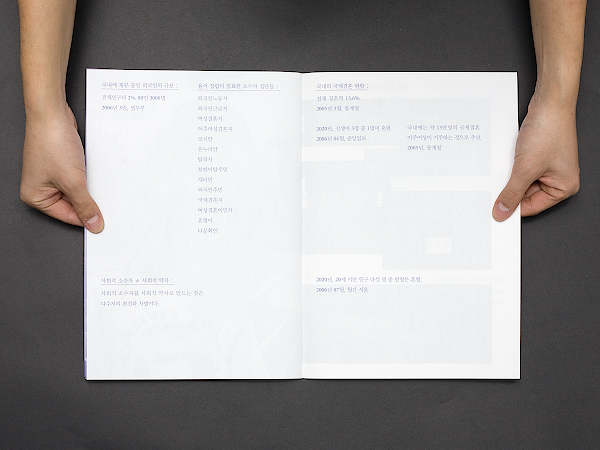 국내에 체류 중인 외국인의 규모 :
전체인구의 2%, 80만 3000명
2006년 5월, 법무부
용어 정립이 필요한 소수자 집단들 :
외국인노동자
외국인근로자
여성결혼자
이주여성결혼자
코시안
온누리안
탈북자
북한이탈주민
새터민
외국인주민
국제결혼자
여성결혼이민자
혼혈아
다문화인
사회적 소수자 ≠ 사회적 약자 :
사회적 소수자를 사회적 약자로 만드는 것은
다수자의 편견과 차별이다.
국내의 국제결혼 현황 :
전체 결혼의 13.6%
2005년 3월, 통계청
2020년, 신생아 3명 중 1명이 혼혈
2006년 04월, 중앙일보
국내에는 약 15만명의 국제결혼
이주여성이 거주하는 것으로 추산.
2005년, 통계청
2020년, 20세 이만 인구 다섯 명 중 한명은 혼혈.
2006년 07월, 월간 서울